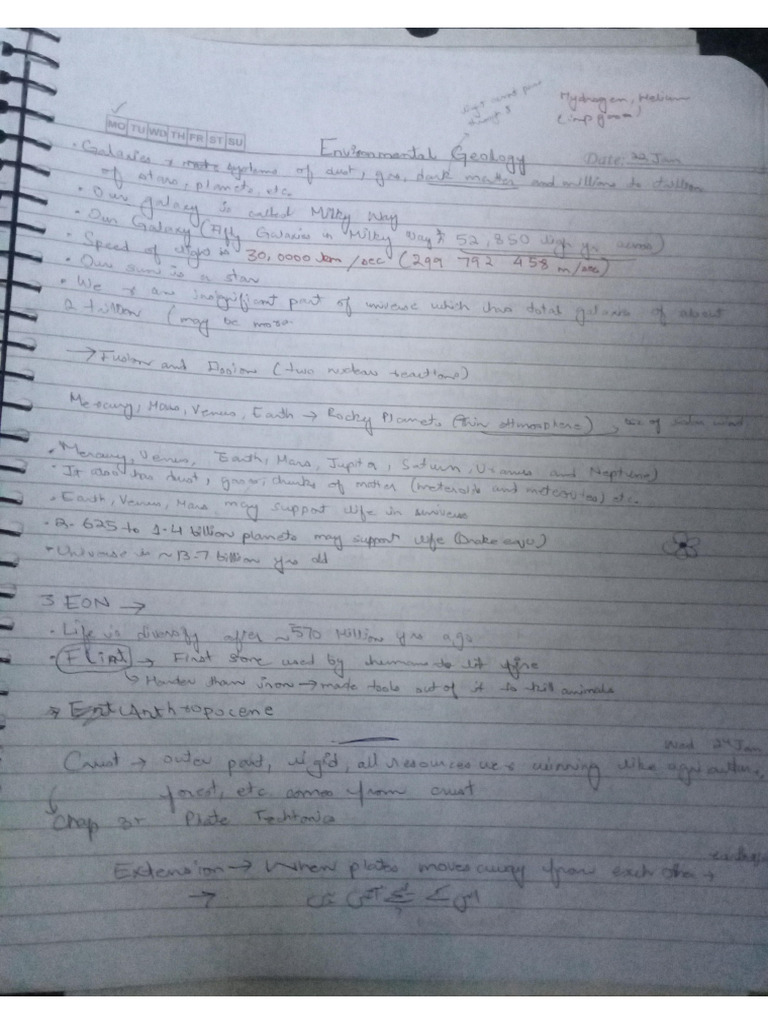 Hydrogen, Helium
(imp gases)
MO TU WD TH FR ST SU
Environmental Geology Date: 22 Jan
• Galaxies → systems of dust, gas, dark matter and millions to trillion
of stars, planets, etc
• Our galaxy is called Milky Way
• Our Galaxy ( Galaxies in Milky Way 52,850 light yrs across)
• Speed of light is 30,0000 km/sec (299 792 458 m/sec)
• Our sun is a star
• We are insignificant part of universe which has total galaxies of about
2 trillion (may be more
→ Fusion and Fission (two nuclear reactions)
Mercury, Mars, Venus, Earth → Rocky Planets (thin atmosphere), of solar wind
• Mercury, Venus, Earth, Mars, Jupiter, Saturn, Uranus and Neptune)
• It also has dust, gases, chunks of matter (meteroids and meteorites) etc.
• Earth, Venus, Mars may support life in universe
• 2.625 to 1.4 billion planets may support life (Drake equ)
• Universe is ~13.7 billion yrs old
3 EON →
• Life is diversify after ~570 Million yrs ago
• Flint → First stone used by humans to lit fire
↳ Harder than iron → made tools out of it to kill animals
Anthropocene
Wed 24 Jan
Crust → outer part, rigid, all resources we r winning like agriculture,
forest, etc comes from crust
↳ Chap 3r Plate Techtonics
Extension → When plates moves away from each other →
→